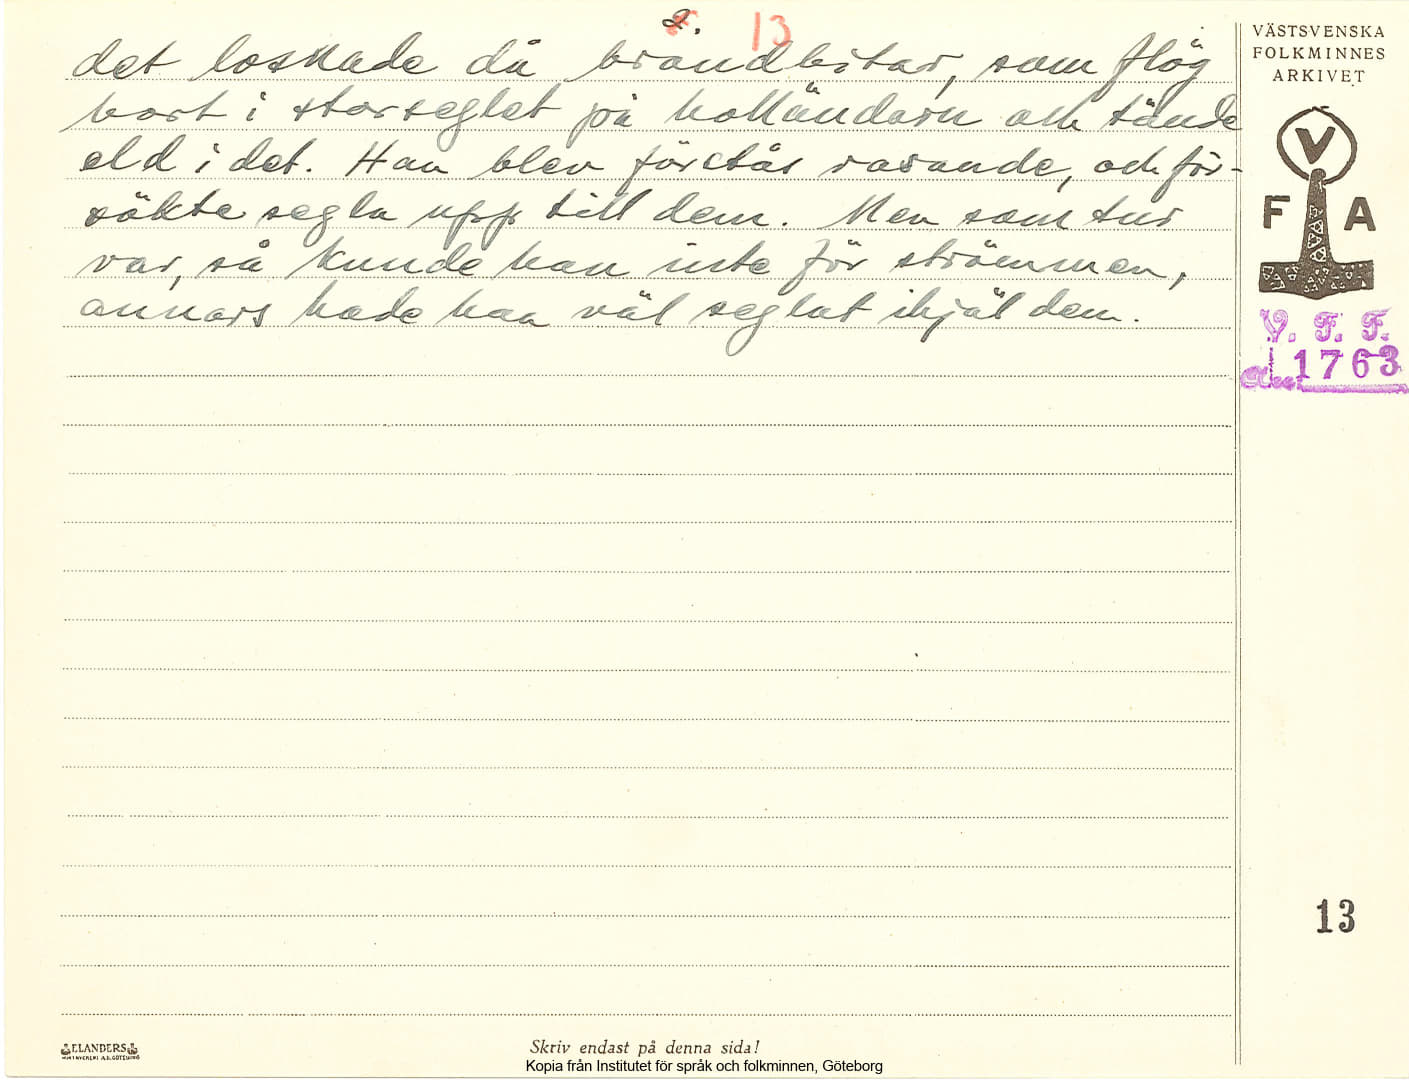 2. 13
det losnade då brandbitar, som flög
bort i storseglet på holländarn och tände
eld i det. Han blev förstås rasande, och för-
sökte segla upp till dem. Men som tur
var, så kunde han inte för strömmen,
annars hade han väl seglat ihjäl dem.
VÄSTSVENSKA
FOLKMINNES
ARKIVET
V
F A
V. F. F.
1763
13
ELANDERS
Skriv endast på denna sida!
Kopia från Institutet för språk och folkminnen, Göteborg